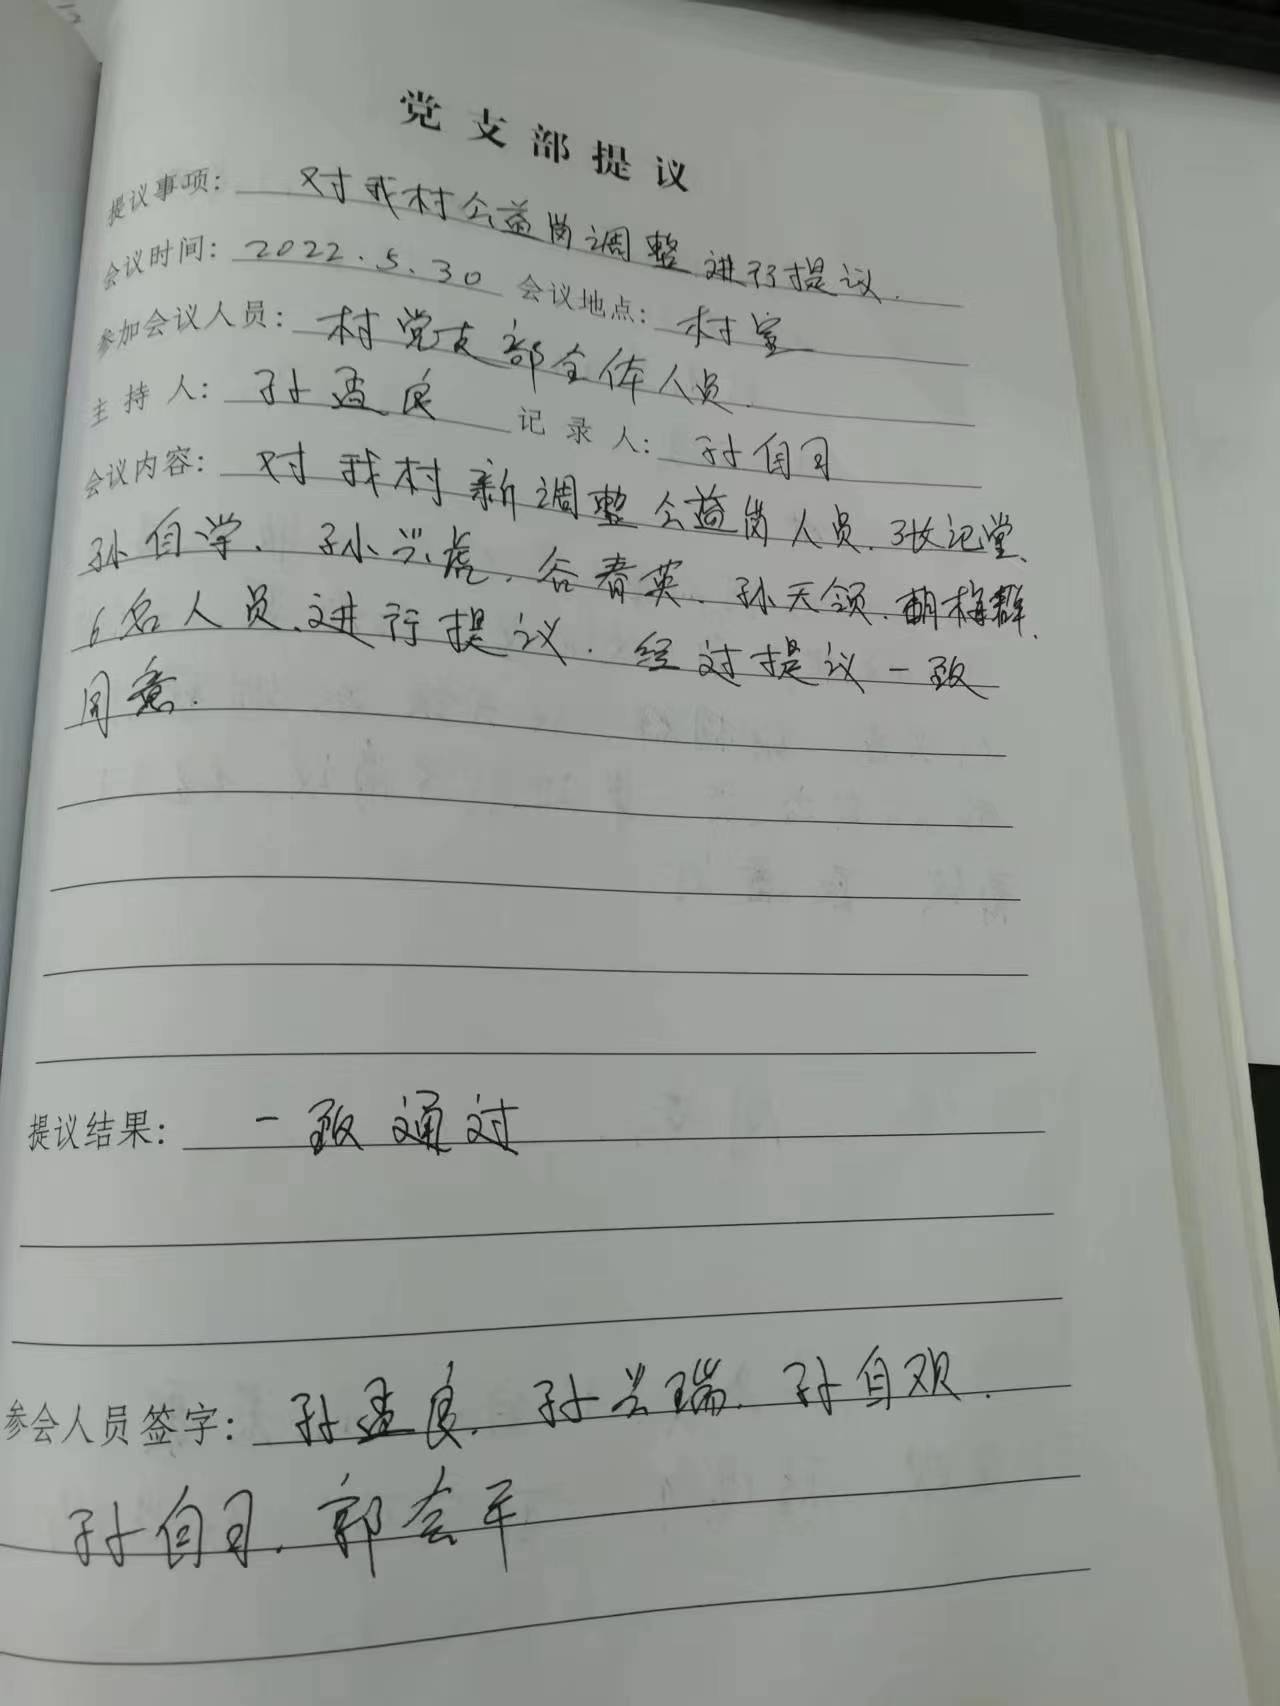 党支部提议
提议事项：对我村公益岗调整进行提议.
会议时间：2022.5.30 会议地点：村室
参加会议人员：村党支部全体人员.
主持人：孙孟良 记录人：孙自习
会议内容：对我村新调整公益岗人员.张记堂、
孙自学、孙兴虎.谷春英.孙天领.胡梅群.
6名人员.进行提议.经过提议一致
同意.
提议结果：一致通过
参会人员签字：孙孟良.孙兴瑞.孙自欢.
孙自习.郭会平